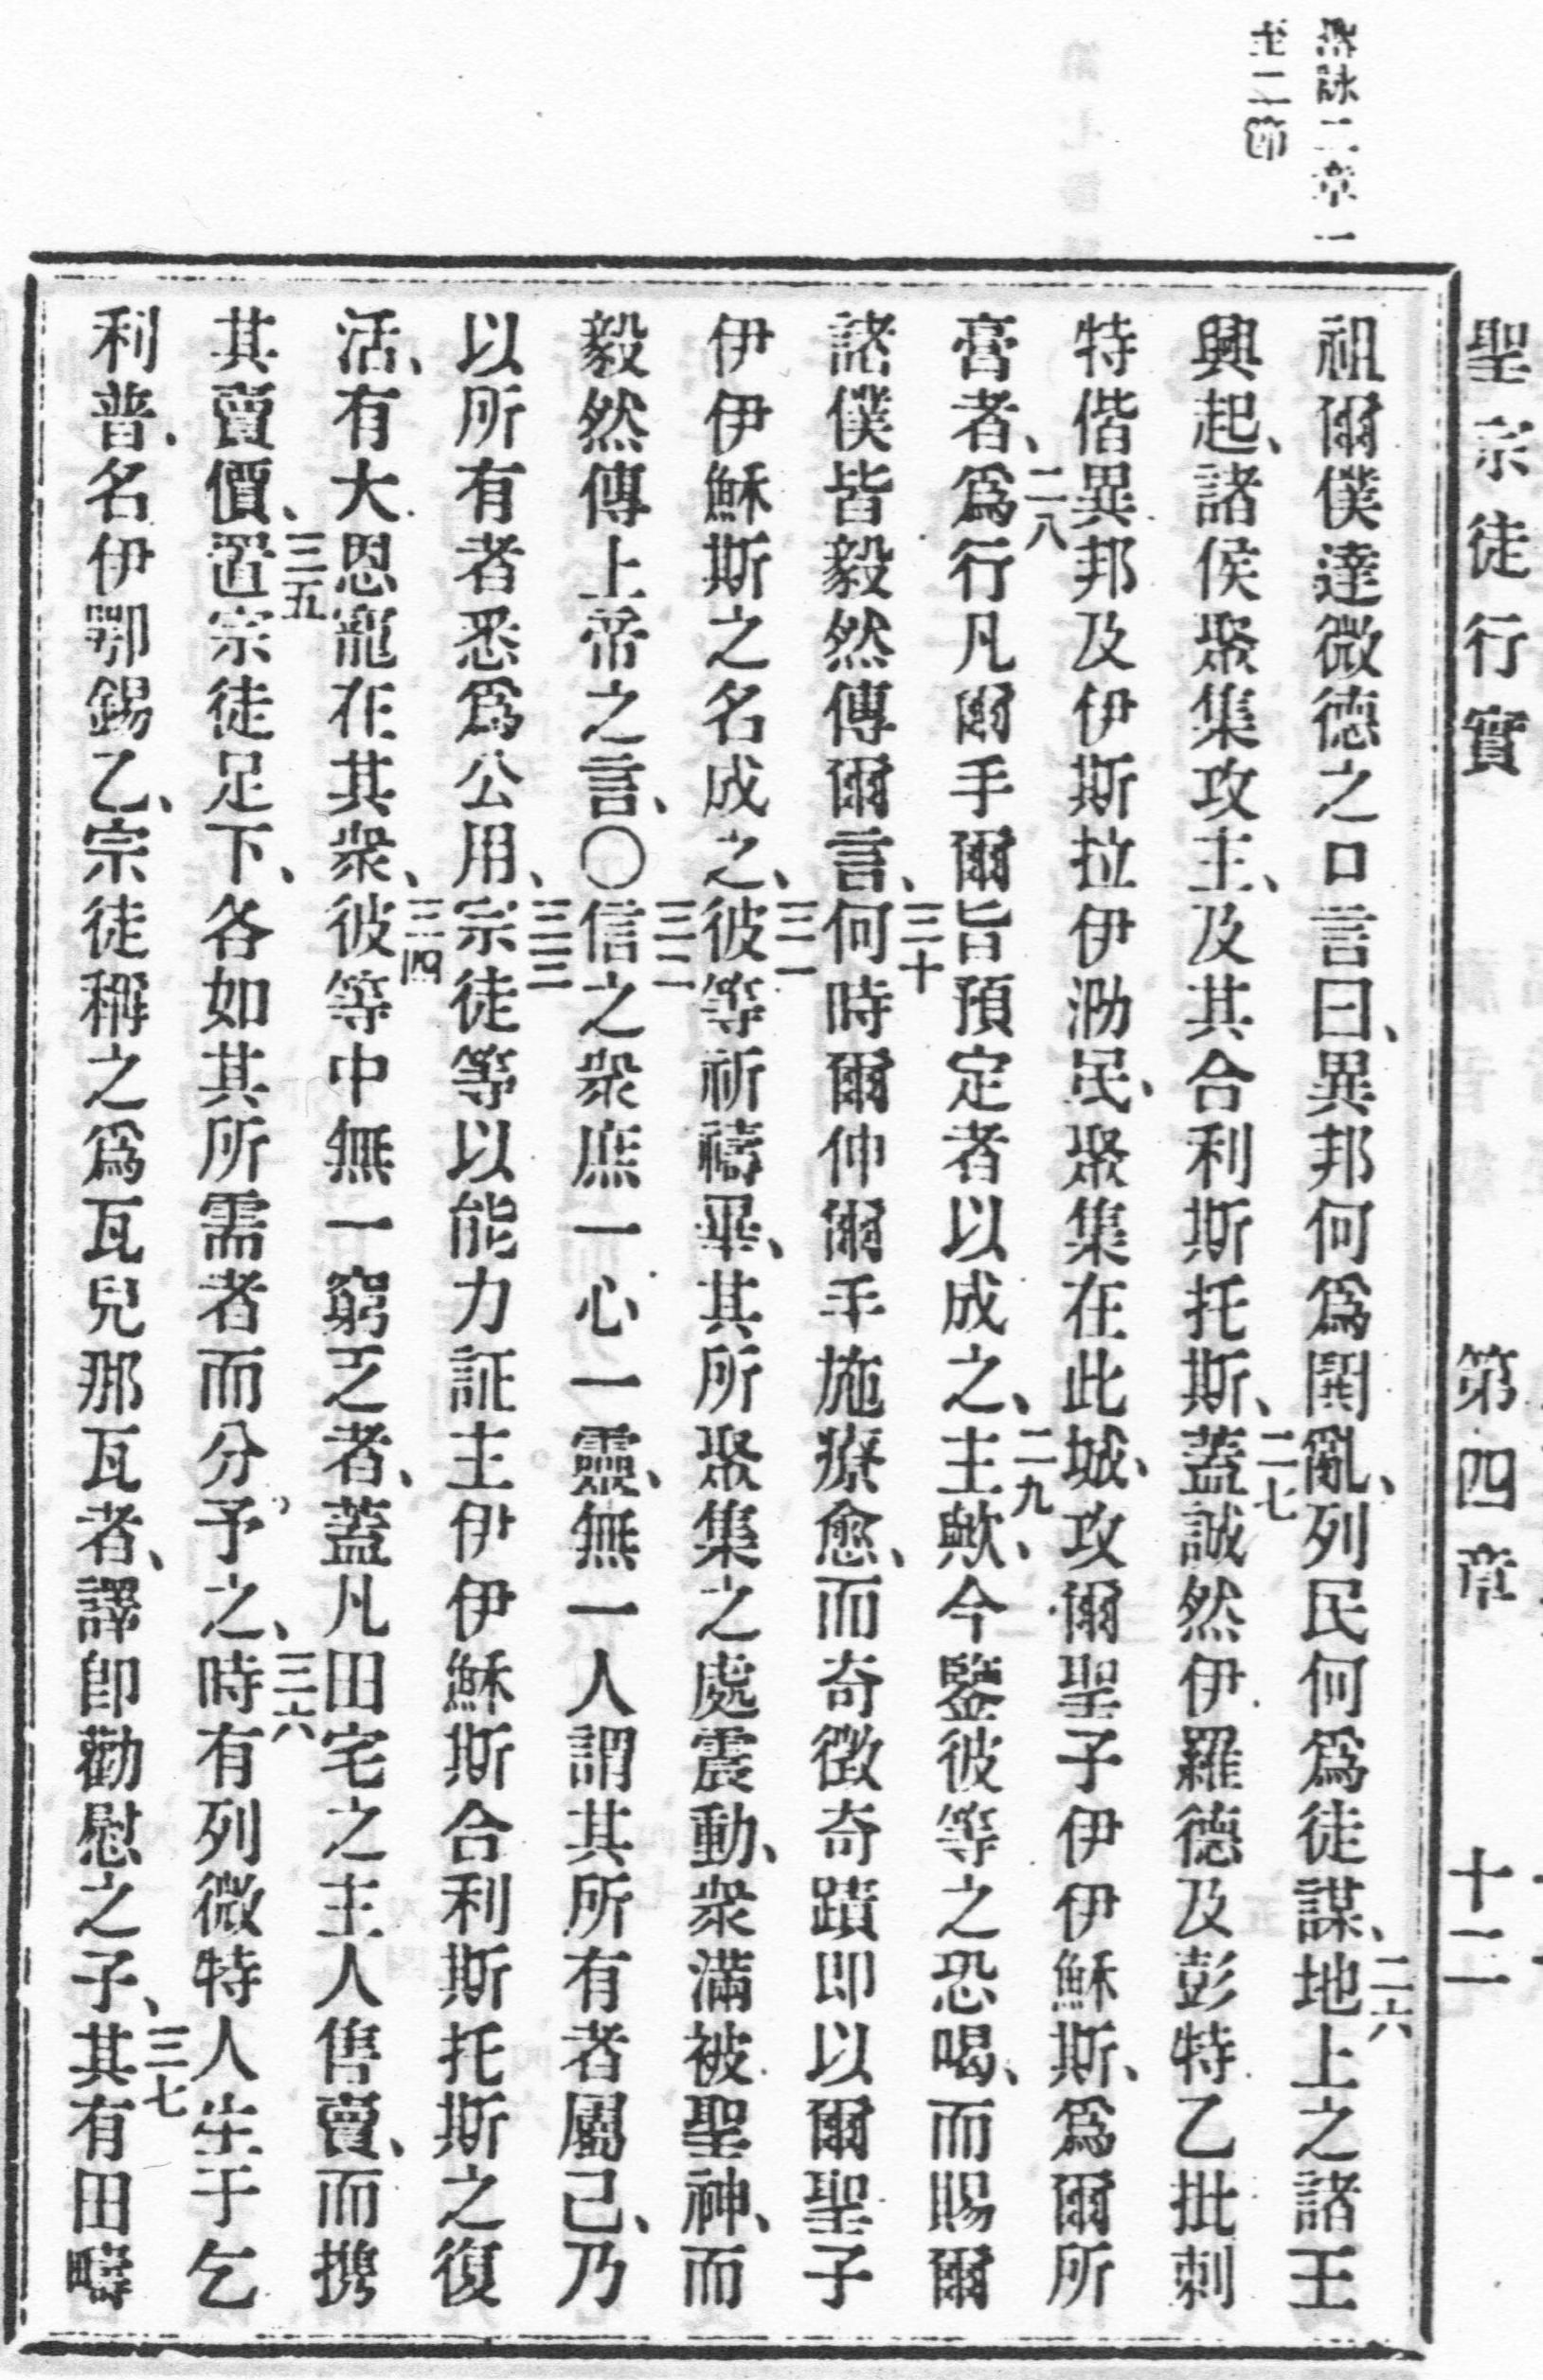 聖宗徒行實 第四章 十二
聖詠二章一
至二節
祖爾僕達微德之口言曰、異邦何爲鬨亂、列民何爲徒謀、二六地上之諸王
興起、諸侯聚集攻主、及其合利斯托斯、二七蓋誠然伊羅德及彭特乙批剌
特偕異邦及伊斯拉伊泐民、聚集在此城、攻爾聖子伊伊穌斯、爲爾所
膏者、二八爲行凡爾手爾旨預定者以成之、二九主歟、今鑒彼等之恐喝、而賜爾
諸僕皆毅然傳爾言、三十何時爾伸爾手施療愈、而奇徵奇蹟即以爾聖子
伊伊穌斯之名成之、三一彼等祈禱畢、其所聚集之處震動、衆滿被聖神、而
毅然傳上帝之言、〇三二信之衆庶一心一靈、無一人謂其所有者屬己、乃
以所有者悉爲公用、三三宗徒等以能力証主伊伊穌斯合利斯托斯之復
活、有大恩寵在其衆、三四彼等中無一窮乏者、蓋凡田宅之主人售賣、而攜
其賣價、三五置宗徒足下、各如其所需者而分予之、三六時有列微特人生于乞
利普、名伊鄂錫乙、宗徒稱之爲瓦兒那瓦者、譯卽勸慰之子、三七其有田疇